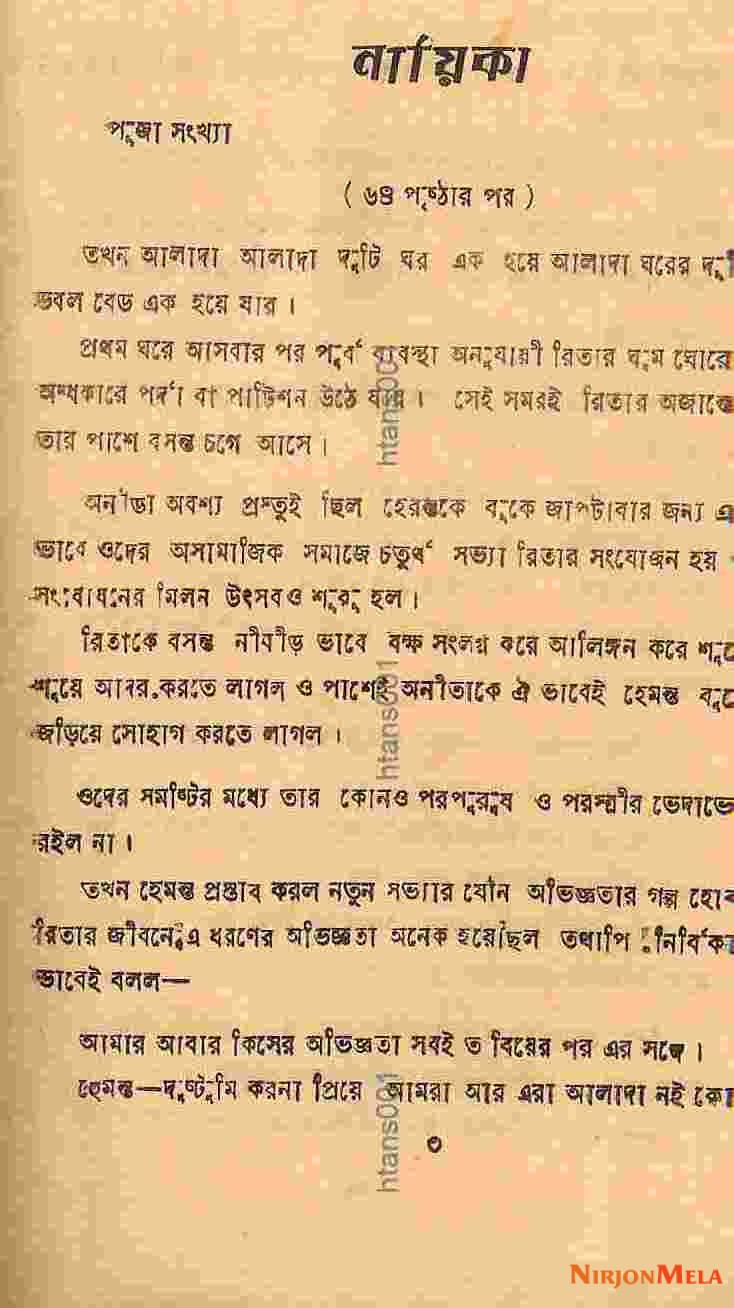 নায়িকা
পূজা সংখ্যা
( ৬৪ পৃষ্ঠার পর )
তখন আলাদা আলাদা দুটি ঘর এক হয়ে আলাদা ঘরের দু
ডবল বেড এক হয়ে যার ।
প্রথম ঘরে আসবার পর পূর্ব ব্যবস্থা অনুযায়ী রিতার ঘুম ঘোরে
অন্ধকারে পর্দা বা পার্টিশন উঠে যায় । সেই সমরই রিতার অজান্তে
তার পাশে বসন্ত চগে আসে ।
অনীতা অবশ্য প্রস্তুই ছিল হেমন্তকে বুকে জাপটাবার জন্য এ
ভাবে ওদের অসামাজিক সমাজে চতুর্থ সভ্যা রিতার সংযোজন হয়
সংবোধনের মিলন উৎসবও শুরু হল ।
রিতাকে বসন্ত নীবীড় ভাবে বক্ষ সংলগ্ন করে আলিঙ্গন করে শু
শুয়ে আদর করতে লাগল ও পাশেই অনীতাকে ঐ ভাবেই হেমন্ত বু
জড়িয়ে সোহাগ করতে লাগল ।
ওদের সমষ্টির মধ্যে তার কোনও পরপুরুষ ও পরস্ত্রীর ভেদাভে
রইল না ।
তখন হেমন্ত প্রস্তাব করল নতুন সভ্যার যৌন অভিজ্ঞতার গল্প হোক
রিতার জীবনে এ ধরণের অভিজ্ঞতা অনেক হয়েছিল তথাপি নির্বিকা
ভাবেই বলল—
আমার আবার কিসের অভিজ্ঞতা সবই ত বিয়ের পর এর সঙ্গে ।
হেমন্ত—দুষ্টুমি করনা প্রিয়ে আমরা আর এরা আলাদা নই কো
৩
htans001
htans001
htans001
NIRJONMELA